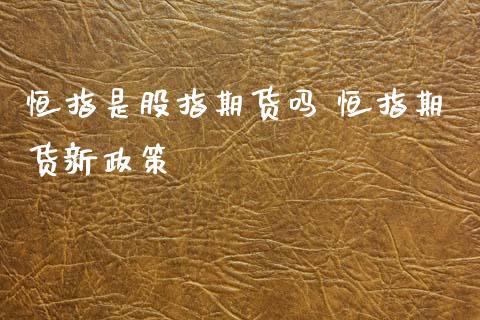 恒指是股指期货吗 恒指期
货新政策